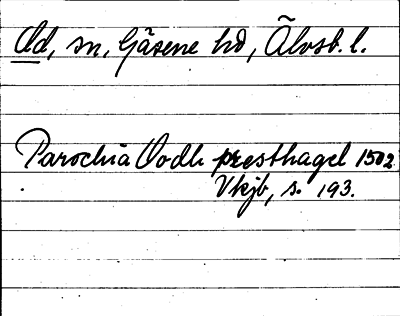 Od, sn, Gäsene hd, Älvsb. l.
Parochia Vodh presthagel 1502
Vkjb, s. 193.